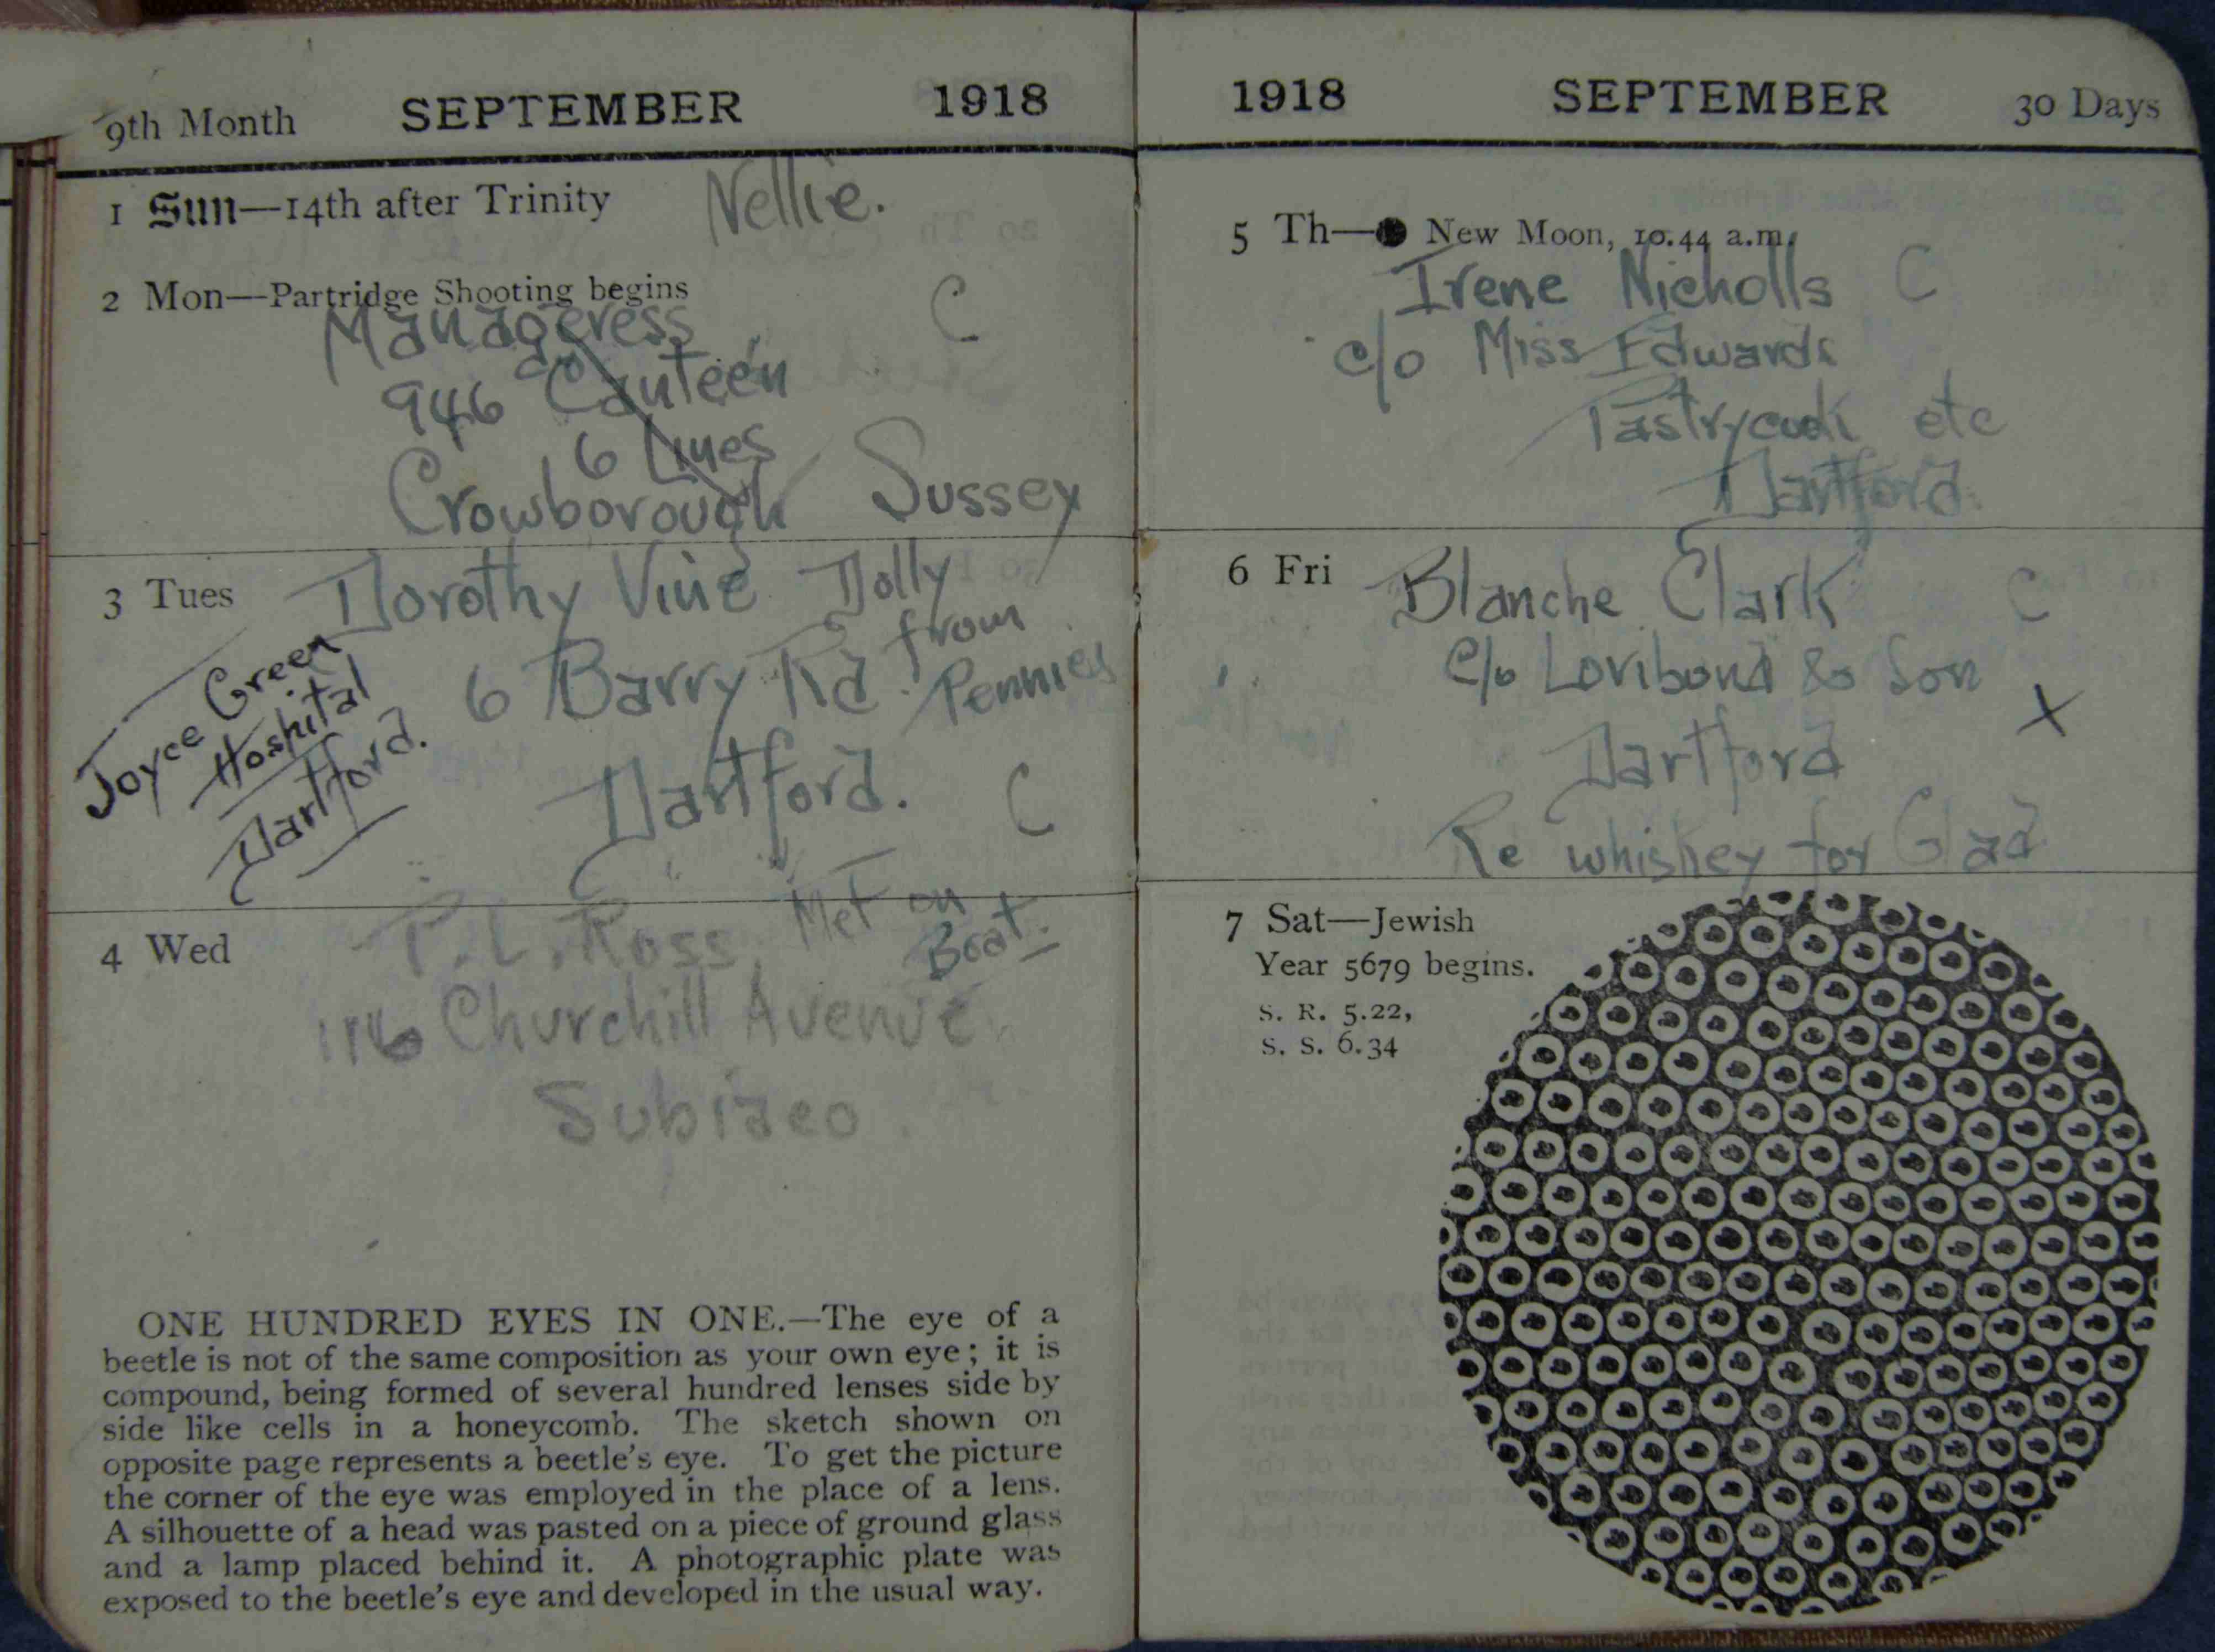 9th Month SEPTEMBER 1918
1 Sun—14th after Trinity Nellie.
2 Mon—Partridge Shooting begins
Manageress C
946 Canteen
6 Lines
Crowborough Sussex
3 Tues Dorothy Vine Dolly
from
6 Barry Rd. Pennies
Dartford. C
Joyce Green
Hoshital
Dartford.
4 Wed P. L. Ross. Met on
Boat.
116 Churchill Avenue
Subiaco.
ONE HUNDRED EYES IN ONE.—The eye of a
beetle is not of the same composition as your own eye; it is
compound, being formed of several hundred lenses side by
side like cells in a honeycomb. The sketch shown on
opposite page represents a beetle's eye. To get the picture
the corner of the eye was employed in the place of a lens.
A silhouette of a head was pasted on a piece of ground glass
and a lamp placed behind it. A photographic plate was
exposed to the beetle's eye and developed in the usual way.
1918 SEPTEMBER 30 Days
5 Th—● New Moon, 10.44 a.m.
Irene Nicholls C
c/o Miss Edwards
Pastrycook etc
Dartford.
6 Fri Blanche Clark C
C/o Loribond & Son
X
Dartford
Re whiskey for Glad
7 Sat—Jewish
Year 5679 begins.
S. R. 5.22,
S. S. 6.34